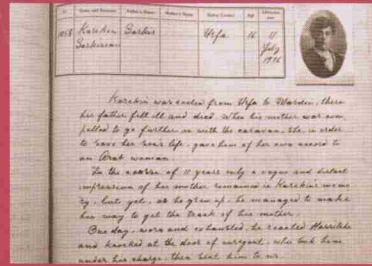 No Name and Surname Father's Name Mother's Name Native Country Age Admission
1058 Karekin Sarkis Urfa 16 11
Sarkissian July
1926
Karekin was exiled from Urfa to Mardin, there
his father fell ill and died. When his mother was com-
pelled to go further on with the caravan, she, in order
to save her son's life, gave him of her own accord to
an Arab woman.
In the course of 11 years only a vague and distant
impression of her mother remained in Karekin's memo-
ry, but yet, as he grew up, he managed to make
his way to get the track of his mother.
One day, worn and exhausted, he reached
and knocked at the door of our agent, who took him
under his charge, then sent him to us.